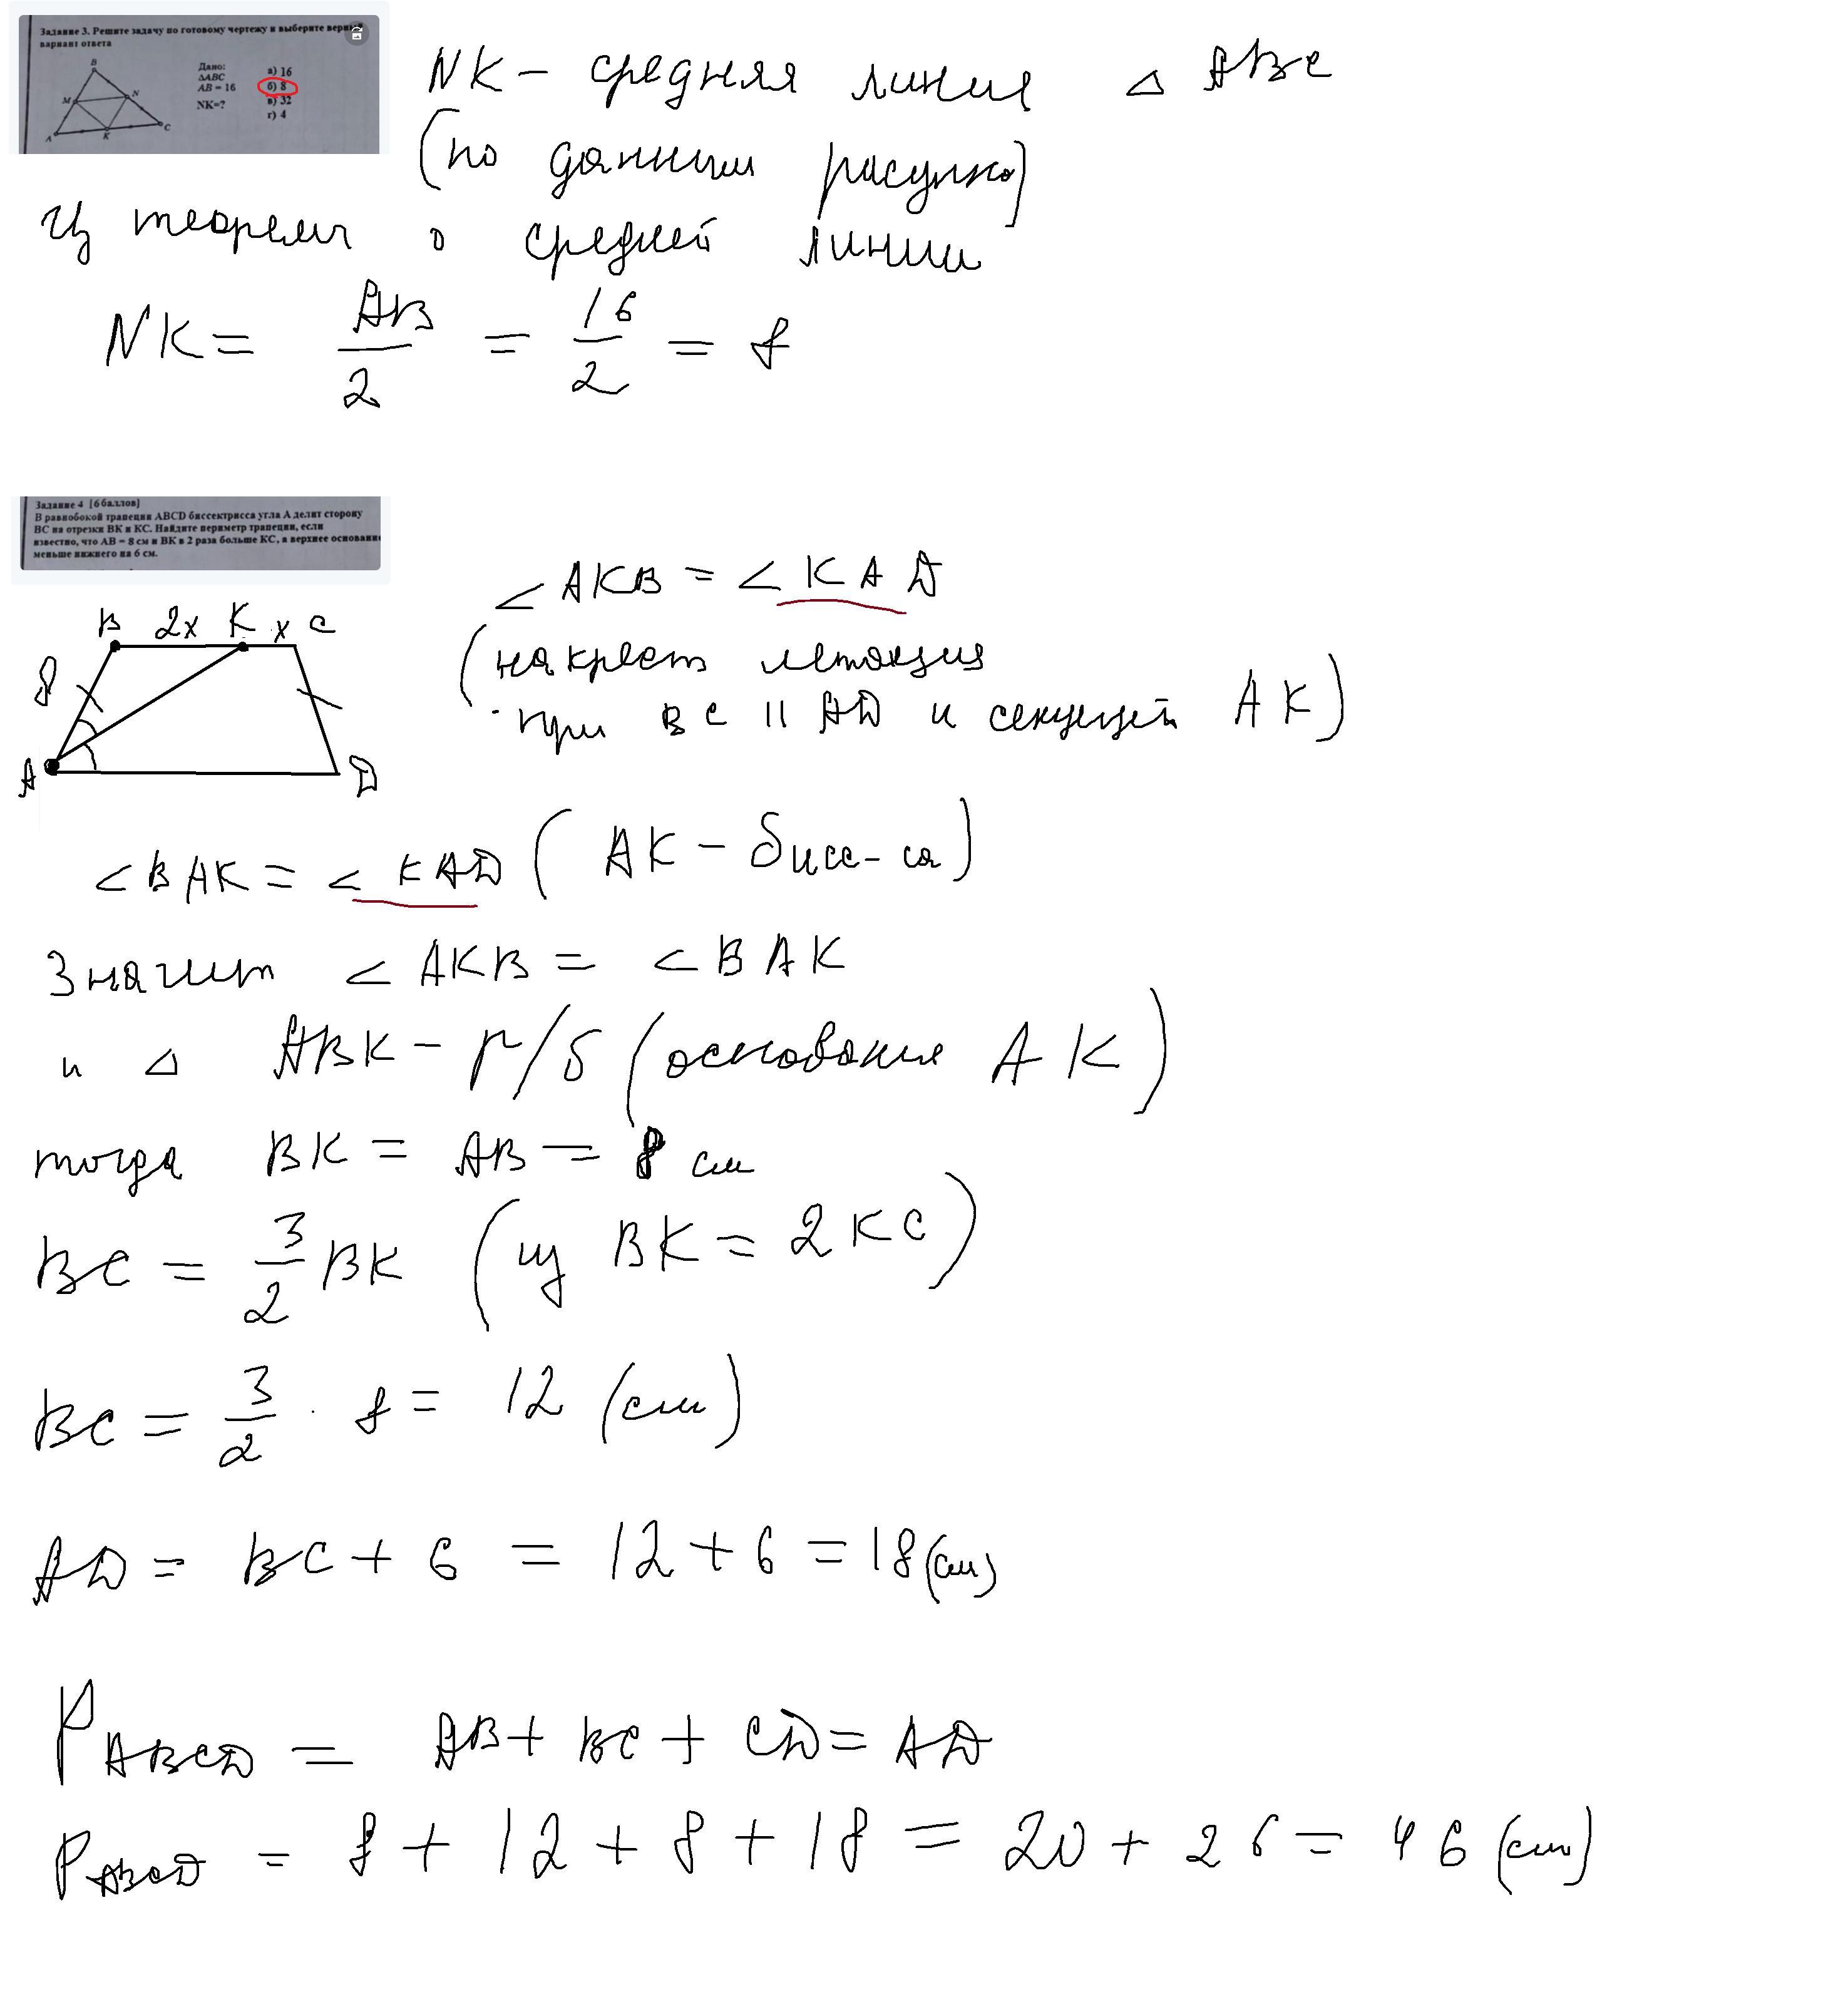 Задание 3. Решите задачу по готовому чертежу и выберите верный
вариант ответа
B
M
N
A
K
C
Дано:
ΔABC
AB = 16
NK=?
а) 16
б) 8
в) 32
г) 4
NK – средняя линия △ ABC
(по данным рисунка)
Из теоремы о средней линии
NK = AB/2 = 16/2 = 8
Задание 4 [6 баллов]
В равнобокой трапеции ABCD биссектрисса угла A делит сторону
BC на отрезки BK и KC. Найдите периметр трапеции, если
известно, что AB = 8 см и BK в 2 раза больше KC, а верхнее основание
меньше нижнего на 6 см.
B 2x K x C
8
A
D
∠AKB = ∠KAD
(накрест лежащие
при BC || AD и секущей AK)
∠BAK = ∠KAD (AK – бисс-са)
Значит ∠AKB = ∠BAK
и △ ABK – р/б (основание AK)
тогда BK = AB = 8 см
BC = 3/2 BK (из BK = 2KC)
BC = 3/2 · 8 = 12 (см)
AD = BC + 6 = 12 + 6 = 18 (см)
P ABCD = AB + BC + CD = AD
P ABCD = 8 + 12 + 8 + 18 = 20 + 26 = 46 (см)